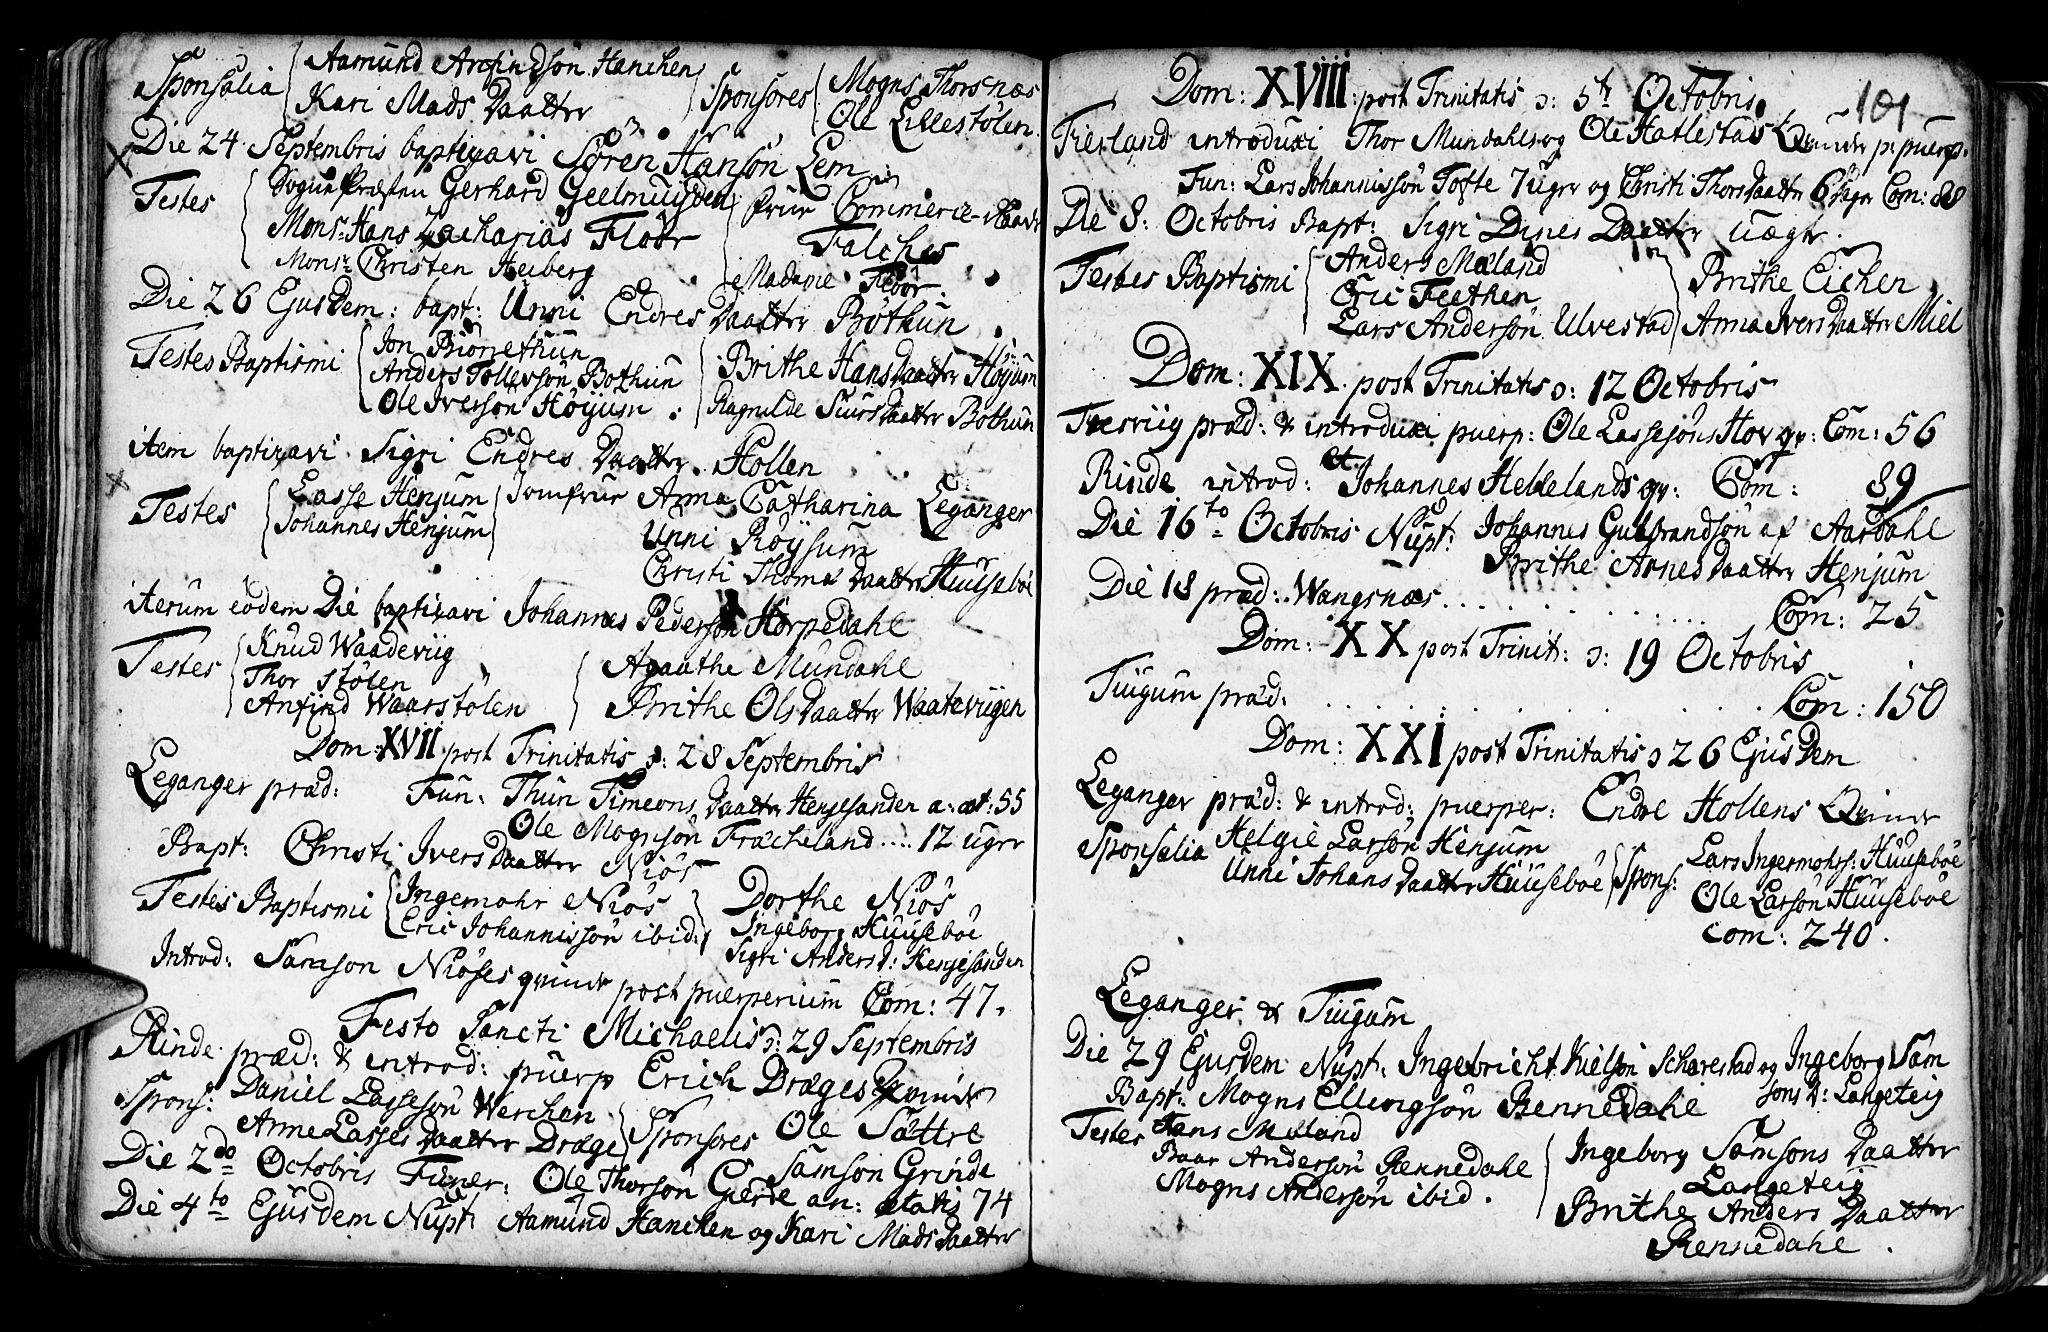 Sponsalia Aamund Arfindsøn Hanchen Sponsores Mogns Thorsnæs
Kari Mads Daatter Ole Lillestølen
Die 24 Septembris baptizavi Søren Hansøn Lem
Testes Sogne Præsten Gerhard Geelmuyden Frue Commerce-Raad
Mons: Hans Zacharias Fløer Falches
Monsr Christen Heiberg Madame Fløer
Die 26 Ejusdem: bapt: Unni Endres Daatter Bøthun
Testes Baptismi Jon Biørrethun
Anders Tollefsøn Bothun Brithe Hans Daatter Høyum
Ole Iversøn Høyum. Ragnilde Siurs Daatter Bothun
item baptizavi Sigri Endres Daatter Hollen
Testes Lasse Henjum Jomfrue Anna Catharina Leganger
Johannes Henjum Unni Røysum
Christi Thomas Daatter Huuseboe
iterum eodem Die baptizavi Johannes Pedersøn Horpedahl
Testes Knud Waadeviig
Thor Støllen Agaathe Mundahl
Anfind Waarstølen Brithe Ols Daatter Waateviigen
Dom: XVII post Trinitatis ɔ: 28 Septembris
Leganger præd: Fun: Thun Timeons Daatter Henjesanden a: æt: 55
Ole Mognsøn Fræcheland .... 12 uger
Bapt: Christi Ivers Daatter Niøs
Testes Baptismi Ingemohr Niøs Dorthe Niøs
Eric Johannissøn ibid: Ingeborg Huuseboe
Sigri Anders D: Henjesanden
Introd: Samson Niøses qvinde post puerperium Com: 47.
Festo Sancti Michaelis ɔ: 29 Septembris
Rinde præd: & introd: puerp Erich Dræges Qvinde
Spons: Daniel Lassesøn Werchen Sponsores Ole Sættre
Anne Lasses Daatter Dræge Samson Grinde
Die 2do Octobris Funer: Ole Thorsøn Gierde an: ætatis 74
Die 4to Ejusdem Nupt: Aamund Hanchen og Kari Mads Daatter
101
Dom: XVIII post Trinitatis ɔ: 5te Octobris
Fierland introduxi Thor Mundahls og Ole Hatlestads Qvinder p: puerp:
Fun: Lars Johannissøn Tofte 7 uger og Christi Thors Daatter 6 Dager Com: 88
Die 8: Octobris Bapt: Sigri Dines Daatter uægte.
Testes Baptismi Anders Mæland Brithe Eichen
Eric Feethen
Lars Andersøn Ulvestad Anna Ivers Daatter Miel
Dom: XIX post Trinitatis ɔ: 12 Octobris
Tresviig præd: & introduxi puerp: Ole Lassesøns Hov qv: Com: 56
Rinde introd: et Johannes Hellelands qv: Com: 89
Die 16to Octobris Nupt: Johannes Gulbrandsøn af Aardahl
Brithe Arnes Daatter Henjum
Die 18 præd: Wangsnæs . . . . . . Com: 25
Dom: XX post Trinit: ɔ: 19 Octobris
Tiugum præd: . . . . . . . . Com: 150
Dom: XXI post Trinitatis ɔ 26 Ejusdem
Leganger præd: & introd: puerper: Endre Hollens Qvinde
Sponsalia Helgie Larsøn Henjum Spons: Lars Ingermohrs: Huuseboe
Unni Johans Daatter Huuseboe Ole Larsøn Huuseboe
Com: 240.
Leganger & Tiugum
Die 29 Ejusdem Nupt: Ingebricht Kielsøn Scharestad og Ingeborg Sam
sons D: Langeteig
Bapt: Mogns Ellingsøn Rennedahl
Testes Hans Mæland Ingeborg Samsons Daatter
Baar Andersøn Rennedahl Langeteig
Mogns Andersøn ibid. Brithe Anders Daatter
Rennedahl.